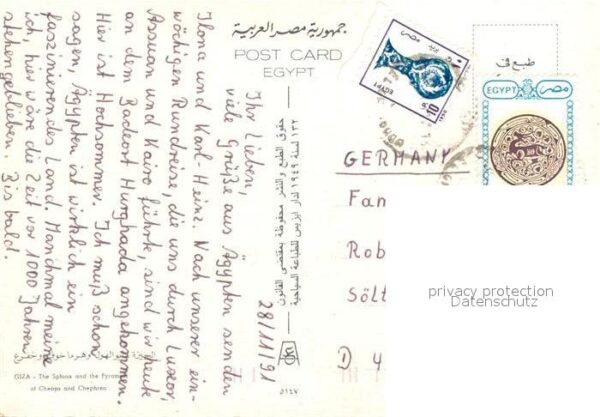 جمهورية مصر العربية
POST CARD
EGYPT
28/11/91
Ihr Lieben,
viele Grüße aus Ägypten senden
Ilona und Karl-Heinz. Nach unserer ein-
wöchigen Rundreise, die uns durch Luxor,
Assuan und Kairo führte, sind wir heute
an dem Badeort Hurghada angekommen.
Hier ist Hochsommer. Ich muß schon
sagen, Ägypten ist wirklich ein
faszinierendes Land. Manchmal meine
ich, hier wäre die Zeit vor 1000 Jahren
stehengeblieben. Bis bald.
GIZA - The Sphinx and the Pyram
of Cheops and Chephren
حقوق الطبع والنشر محفوظة بمقتضى القانون
١٣٢ لسنة ١٩٤٩
بريد
10
طبع في
EGYPT
مصر
GERMANY
Fam
Rob
Sölt
D 4
privacy protection
Datenschutz